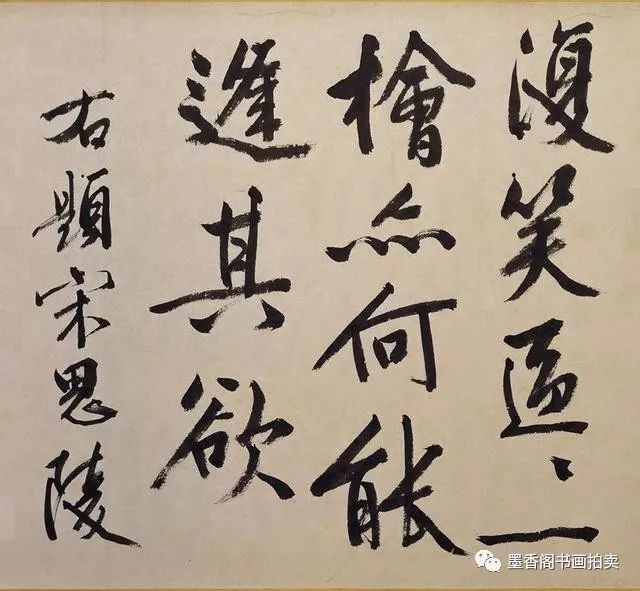 復笑區〻一
檜亦何能
逢其欲
右題宋思陵
墨香阁书画拍卖